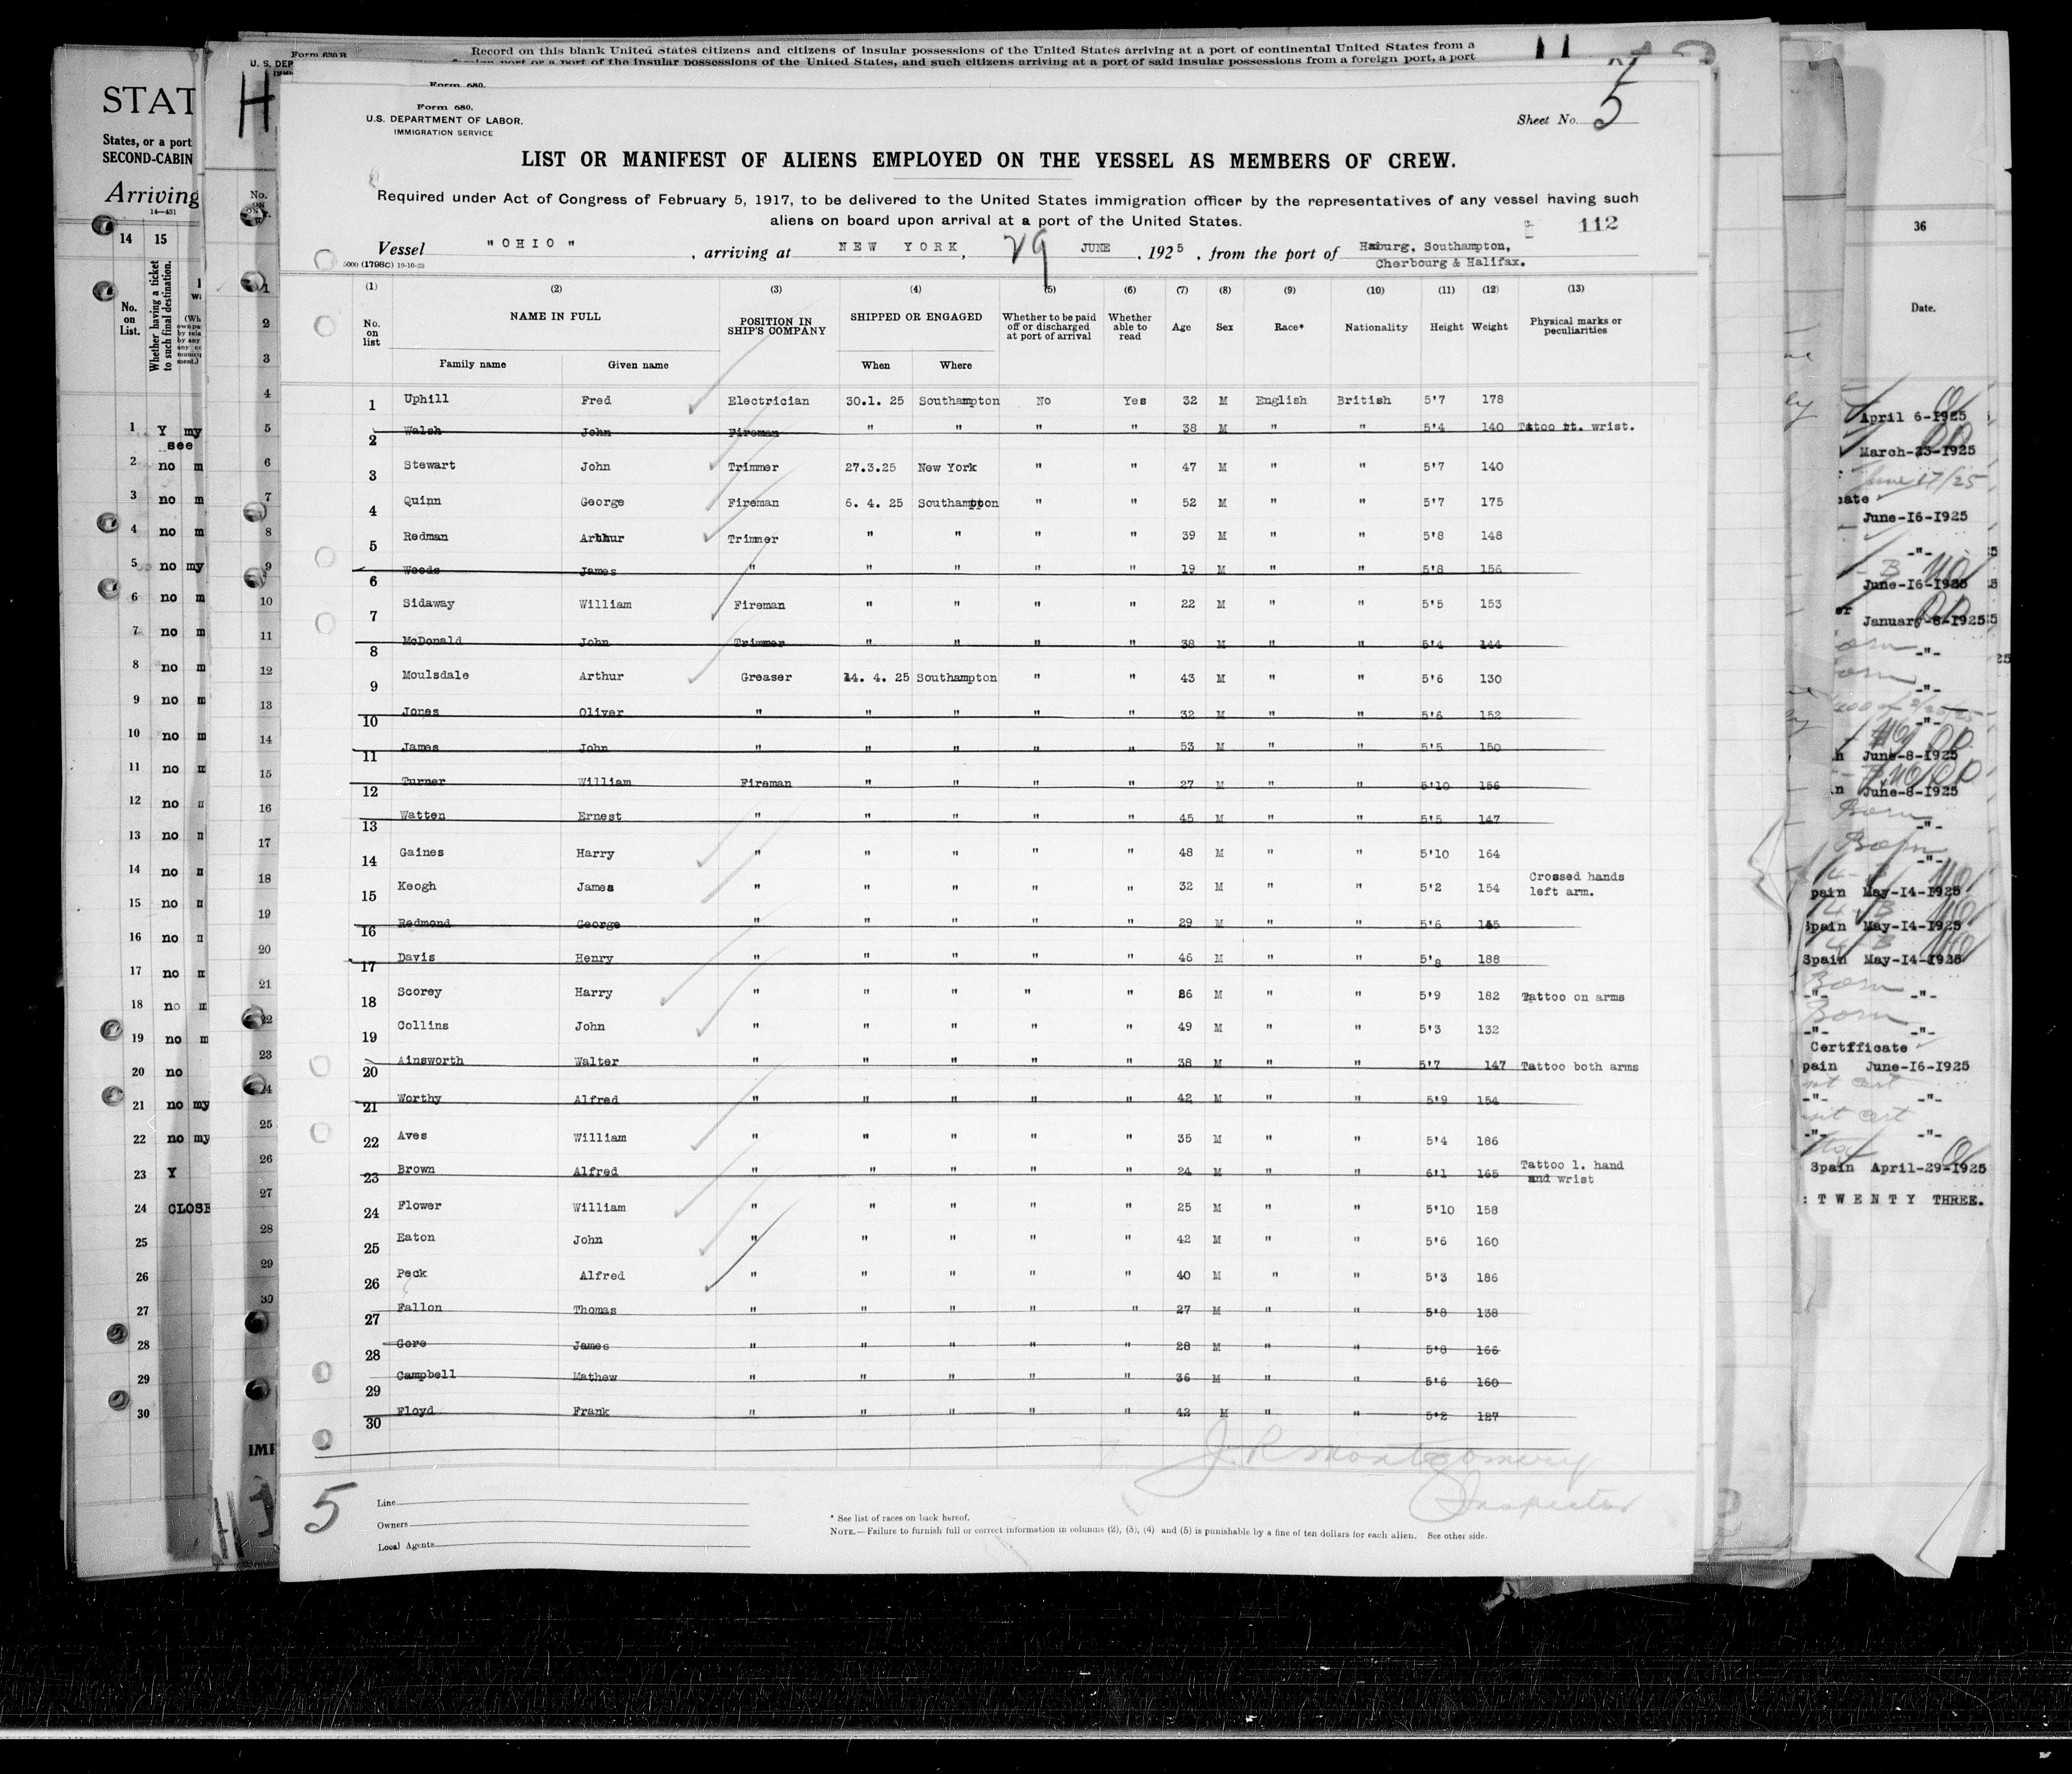 Record on this blank United States citizens and citizens of insular possessions of the United States arriving at a port of continental United States from a
foreign port or a port of the insular possessions of the United States, and such citizens arriving at a port of said insular possessions from a foreign port, a port
Form 630 B
U. S. DEP
Form 680.
Form 680.
U.S. DEPARTMENT OF LABOR.
IMMIGRATION SERVICE
Sheet No. 5
LIST OR MANIFEST OF ALIENS EMPLOYED ON THE VESSEL AS MEMBERS OF CREW.
Required under Act of Congress of February 5, 1917, to be delivered to the United States immigration officer by the representatives of any vessel having such
aliens on board upon arrival at a port of the United States.
112
Vessel "OHIO", arriving at NEW YORK, 29 JUNE, 1925, from the port of Haburg, Southampton,
Cherbourg & Halifax.
5000 (1798C) 19-10-23
(1) (2) (3) (4) (5) (6) (7) (8) (9) (10) (11) (12) (13)
No. on list NAME IN FULL POSITION IN SHIP'S COMPANY SHIPPED OR ENGAGED Whether to be paid off or discharged at port of arrival Whether able to read Age Sex Race* Nationality Height Weight Physical marks or peculiarities
Family name Given name When Where
1 Uphill Fred Electrician 30.1. 25 Southampton No Yes 32 M English British 5'7 178
2 Walsh John Fireman " " " " 38 M " " 5'4 140 Tatoo rt. wrist.
3 Stewart John Trimmer 27.3.25 New York " " 47 M " " 5'7 140
4 Quinn George Fireman 6. 4. 25 Southampton " " 52 M " " 5'7 175
5 Redman Arthur Trimmer " " " " 39 M " " 5'8 148
6 Woods James " " " " " 19 M " " 5'8 156
7 Sidaway William Fireman " " " " 22 M " " 5'5 153
8 McDonald John Trimmer " " " " 38 M " " 5'4 144
9 Moulsdale Arthur Greaser 14. 4. 25 Southampton " " 43 M " " 5'6 130
10 Jones Oliver " " " " " 32 M " " 5'6 152
11 James John " " " " " 53 M " " 5'5 150
12 Turner William Fireman " " " " 27 M " " 5'10 156
13 Watten Ernest " " " " " 45 M " " 5'5 147
14 Gaines Harry " " " " " 48 M " " 5'10 164
15 Keogh James " " " " " 32 M " " 5'2 154 Crossed hands left arm.
16 Redmond George " " " " " 29 M " " 5'6 145
17 Davis Henry " " " " " 46 M " " 5'8 188
18 Scorey Harry " " " " " 26 M " " 5'9 182 Tattoo on arms
19 Collins John " " " " " 49 M " " 5'3 132
20 Ainsworth Walter " " " " " 38 M " " 5'7 147 Tattoo both arms
21 Worthy Alfred " " " " " 42 M " " 5'9 154
22 Aves William " " " " " 35 M " " 5'4 186
23 Brown Alfred " " " " " 24 M " " 6'1 165 Tattoo l. hand and wrist
24 Flower William " " " " " 25 M " " 5'10 158
25 Eaton John " " " " " 42 M " " 5'6 160
26 Peck Alfred " " " " " 40 M " " 5'3 186
27 Fallon Thomas " " " " " 27 M " " 5'8 138
28 Gore James " " " " " 28 M " " 5'8 166
29 Campbell Mathew " " " " " 36 M " " 5'6 160
30 Floyd Frank " " " " " 42 M " " 5'2 127
J R Montgomery
Inspector
5
Line
Owners
Local Agents
* See list of races on back hereof.
NOTE.—Failure to furnish full or correct information in columns (2), (3), (4) and (5) is punishable by a fine of ten dollars for each alien. See other side.
STAT
States, or a port
SECOND-CABIN
Arriving
14—431
14 15
No. on List.
Whether having a ticket to such final destination.
1 Y my
see
2 no m
3 no m
4 no m
5 no my
6 no m
7 no m
8 no m
9 no m
10 no m
11 no m
12 no
13 no
14 no
15 no
16 no
17 no
18 no
19 no m
20 no
21 no my
22 no my
23 Y
24 CLOSE
25
26
27
28
29
30
36
Date.
April 6-1925
March-23-1925
June 17/25
June-16-1925
-"-
June-16-1925
January-8-1925
-"-
-"-
-"-
June-8-1925
June-8-1925
Born
-"-
Born
-"-
pain May-14-1925
Spain May-14-1925
Spain May-14-1925
Born
-"- -"-
Born
-"- -"-
Certificate
pain June-16-1925
-"- -"-
-"- -"-
Spain April-29-1925
: TWENTY THREE.